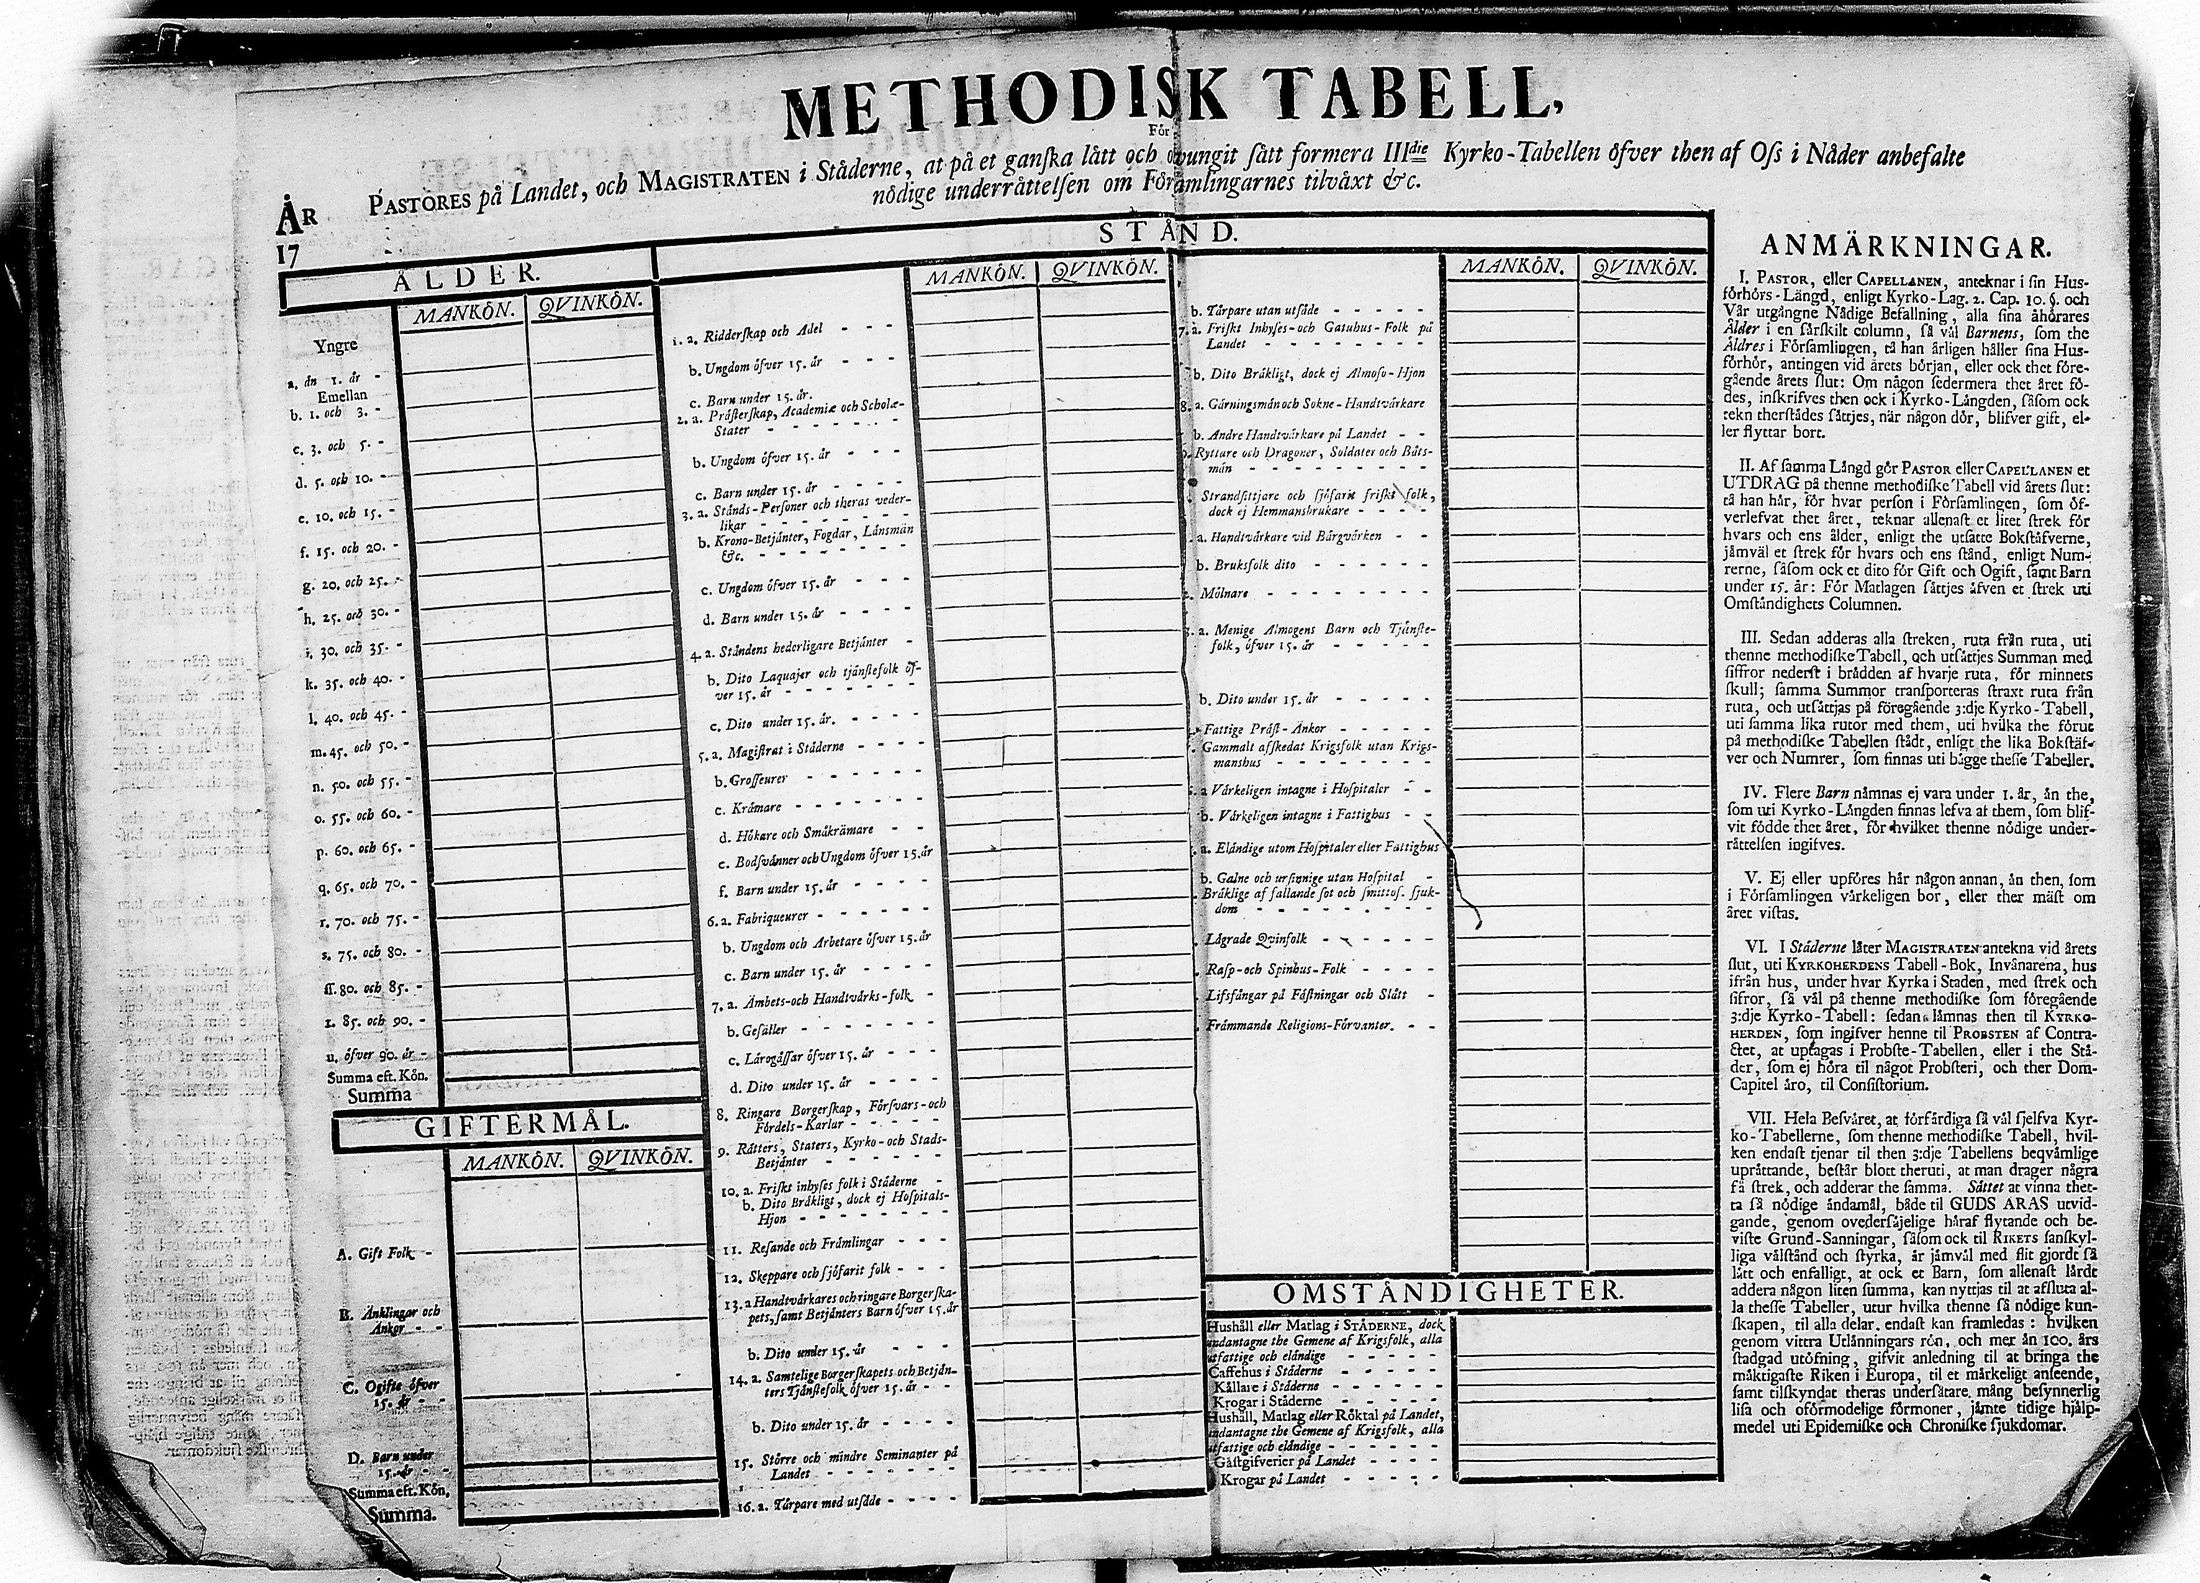 METHODISK TABELL,
För
PASTORES på Landet, och MAGISTRATEN i Städerne, at på et ganſka lätt och otvungit ſätt formera IIIdie Kyrko-Tabellen öfver then af Oſs i Nåder anbefalte
nödige underrättelſen om Förſamlingarnes tilväxt &c.
ÅR
17
ÅLDER.
MANKÖN. QVINKÖN.
Yngre
a. än 1. år -
Emellan
b. 1. och 3. -
c. 3. och 5. -
d. 5. och 10. -
e. 10. och 15. -
f. 15. och 20. -
g. 20. och 25. -
h. 25. och 30. -
i. 30. och 35. -
k. 35. och 40. -
l. 40. och 45. -
m. 45. och 50. -
n. 50. och 55. -
o. 55. och 60. -
p. 60. och 65. -
q. 65. och 70. -
r. 70. och 75. -
s. 75. och 80. -
ſſ. 80. och 85. -
t. 85. och 90. -
u. öfver 90. år -
Summa eft. Kön.
Summa
GIFTERMÅL.
MANKÖN. QVINKÖN.
A. Gift Folk -
B. Änklingar och
Änkor - -
C. Ogifte öfver
15. år - -
D. Barn under
15. år - -
Summa eft. Kön.
Summa.
STÅND.
MANKÖN. QVINKÖN.
1. a. Ridderſkap och Adel - - -
b. Ungdom öfver 15. år - - -
c. Barn under 15. år.
2. a. Präſterſkap, Academiæ och Scholæ-
Stater - - - - - - -
b. Ungdom öfver 15. år - - -
c. Barn under 15. år - - - -
3. a. Stånds-Perſoner och theras veder-
likar - - - - - - -
b. Krono-Betjänter, Fogdar, Länsmän
&c. - - - - - - - -
c. Ungdom öfver 15. år - - - -
d. Barn under 15. år - - - -
4. a. Ståndens hederligare Betjänter -
b. Dito Laquajer och tjänſtefolk öf-
ver 15. år - - - - - - -
c. Dito under 15. år. - - - -
5. a. Magiſtrat i Städerne - - - -
b. Groſſeurer - - - - - -
c. Krämare - - - - - -
d. Hökare och Småkrämare - -
e. Bodſvänner och Ungdom öfver 15. år
f. Barn under 15. år - - - -
6. a. Fabriqueurer - - - - - -
b. Ungdom och Arbetare öfver 15. år
c. Barn under 15. år - - - -
7. a. Ämbets-och Handtvärks-folk -
b. Geſäller - - - - - -
c. Lärogåſſar öfver 15. år - - -
d. Dito under 15. år - - - -
8. Ringare Borgerſkap, Förſvars-och
Fördels-Karlar - - - - -
9. Rätters, Staters, Kyrko-och Stads-
Betjänter - - - - - -
10. a. Friſkt inhyſes folk i Städerne -
b. Dito Bräkligt, dock ej Hoſpitals-
Hjon - - - - - - -
11. Reſande och Främlingar - - -
12. Skeppare och ſjöfarit folk - - -
13. a Handtvärkares och ringare Borgerſka-
pets, ſamt Betjänters Barn öfver 15. år
b. Dito under 15. år - - - -
14. a. Samtelige Borgerſkapets och Betjän-
ters Tjänſtefolk öfver 15. år - -
b. Dito under 15. år - - - -
15. Större och mindre Seminanter på
Landet - - - - - - -
16. a. Tårpare med utſäde - - - -
MANKÖN. QVINKÖN.
b. Tårpare utan utſäde - - - - -
7. a. Friſkt Inhyſes-och Gatuhus-Folk på
Landet - - - - - - - -
b. Dito Bräkligt, dock ej Almoſo-Hjon
8. a. Gärningsmän och Sokne-Handtvärkare
b. Andre Handtvärkare på Landet - -
Ryttare och Dragoner, Soldater och Båts-
män - - - - - - - -
Strandſittjare och ſjöfarit friſkt folk,
dock ej Hemmansbrukare - - - -
a. Handtvärkare vid Bärgvärken - -
b. Bruksfolk dito - - - - - -
Mölnare - - - - - - - -
a. Menige Almogens Barn och Tjänſte-
folk, öfver 15. år - - - - -
b. Dito under 15. år - - - - -
Fattige Präſt-Änkor - - - - -
Gammalt afſkedat Krigsfolk utan Krigs-
manshus - - - - - - - -
a Värkeligen intagne i Hoſpitaler - -
b. Värkeligen intagne i Fattighus - -
a. Eländige utom Hoſpitaler eller Fattighus
b. Galne och urſinnige utan Hoſpital -
Bräklige af fallande ſot och ſmittoſ. ſjuk-
dom - - - - - - - -
Lägrade Qvinfolk - - - - -
Raſp-och Spinhus-Folk - - - -
Lifsfångar på Fäſtningar och Slått -
Främmande Religions-Förvanter. - -
OMSTÄNDIGHETER.
Hushåll eller Matlag i STÄDERNE, dock
undantagne the Gemene af Krigsfolk, alla
utfattige och eländige - - - - -
Caffehus i Städerne - - - - -
Källare i Städerne - - - - - -
Krogar i Städerne - - - - - -
Hushåll, Matlag eller Röktal på Landet,
undantagne the Gemene af Krigsfolk, alla
utfattige och eländige - - - - -
Gäſtgifverier på Landet - - - -
Krogar på Landet - - - - -
ANMÄRKNINGAR.
I. PASTOR, eller CAPELLANEN, anteknar i ſin Hus-
förhörs-Längd, enligt Kyrko-Lag. 2. Cap. 10. §. och
Vår utgångne Nådige Befallning, alla ſina åhörares
Ålder i en ſärſkilt column, ſå väl Barnens, ſom the
Äldres i Förſamlingen, tå han årligen håller ſina Hus-
förhör, antingen vid årets början, eller ock thet före-
gående årets ſlut: Om någon ſedermera thet året fö-
des, inſkrifves then ock i Kyrko-Längden, ſåſom ock
tekn therſtädes ſättjes, när någon dör, blifver gift, el-
ler flyttar bort.
II. Af ſamma Längd gör PASTOR eller CAPELLANEN et
UTDRAG på thenne methodiſke Tabell vid årets ſlut:
tå han här, för hvar perſon i Förſamlingen, ſom öf-
verlefvat thet året, teknar allenaſt et litet ſtrek för
hvars och ens ålder, enligt the utſatte Bokſtäfverne,
jämväl et ſtrek för hvars och ens ſtånd, enligt Num-
rerne, ſåſom ock et dito för Gift och Ogift, ſamt Barn
under 15. år: För Matlagen ſättjes äfven et ſtrek uti
Omſtändighets Columnen.
III. Sedan adderas alla ſtreken, ruta från ruta, uti
thenne methodiſke Tabell, och utſättjes Summan med
ſiffror nederſt i brädden af hvarje ruta, för minnets
ſkull; ſamma Summor tranſporteras ſtraxt ruta från
ruta, och utſättjas på föregående 3:dje Kyrko-Tabell,
uti ſamma lika rutor med them, uti hvilka the förut
på methodiſke Tabellen ſtådt, enligt the lika Bokſtäf-
ver och Numrer, ſom finnas uti bägge theſſe Tabeller.
IV. Flere Barn nämnas ej vara under 1. år, än the,
ſom uti Kyrko-Längden finnas lefva af them, ſom blif-
vit födde thet året, för hvilket thenne nödige under-
rättelſen ingifves.
V. Ej eller upföres här någon annan, än then, ſom
i Förſamlingen värkeligen bor, eller ther mäſt om
året viſtas.
VI. I Städerne låter MAGISTRATEN antekna vid årets
ſlut, uti KYRKOHERDENS Tabell-Bok, Invånarena, hus
ifrån hus, under hvar Kyrka i Staden, med ſtrek och
ſifror, ſå väl på thenne methodiſke ſom föregående
3:dje Kyrko-Tabell: ſedan lämnas then til KYRKO-
HERDEN, ſom ingifver henne til PROBSTEN af Contra-
ctet, at uptagas i Probſte-Tabellen, eller i the Stä-
der, ſom ej höra til något Probſteri, och ther Dom-
Capitel äro, til Conſiſtorium.
VII. Hela Beſväret, at förfärdiga ſå väl ſjelfva Kyr-
ko-Tabellerne, ſom thenne methodiſke Tabell, hvil-
ken endaſt tjenar til then 3:dje Tabellens beqvämlige
uprättande, beſtår blott theruti, at man drager några
få ſtrek, och adderar the ſamma. Sättet at vinna thet-
ta ſå nödige ändamål, både til GUDS ÄRAS utvid-
gande, genom ovederſäjelige häraf flytande och be-
viſte Grund-Sanningar, ſåſom ock til RIKETS ſanſkyl-
liga välſtånd och ſtyrka, är jämväl med flit gjordt ſå
lätt och enfalligt, at ock et Barn, ſom allenaſt lärdt
addera någon liten ſumma, kan nyttjas til at afſluta al-
la theſſe Tabeller, utur hvilka thenne ſå nödige kun-
ſkapen, til alla delar, endaſt kan framledas: hvilken
genom vittra Utlänningars rön, och mer än 100. års
ſtadgad utöfning, gifvit anledning til at bringa the
mäktigaſte Riken i Europa, til et märkeligt anſeende,
ſamt tilſkyndat theras underſåtare mång beſynnerlig
liſa och oförmodelige förmoner, jämte tidige hjälp-
medel uti Epidemiſke och Chroniſke ſjukdomar.